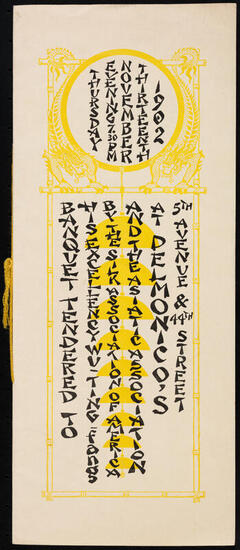 THURSDAY
EVENING 7.30 PM
NOVEMBER
THIRTEENTH
1902
BANQUET TENDERED TO
HIS EXCELLENCY WU-TING-fang
BY THE SILK ASSOCIATION OF AMERICA
AND THE ASIATIC ASSOCIATION
AT DELMONICO'S
5TH AVENUE & 44TH STREET